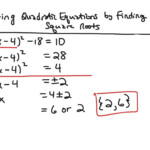 ing Quadratic Equations by Finding
Square Roots
x - 4)² - 18 = 10
x - 4)² = 28
x - 4)² = 4
x - 4 = ±2
x = 4 ± 2
= 6 or 2 {2,6}